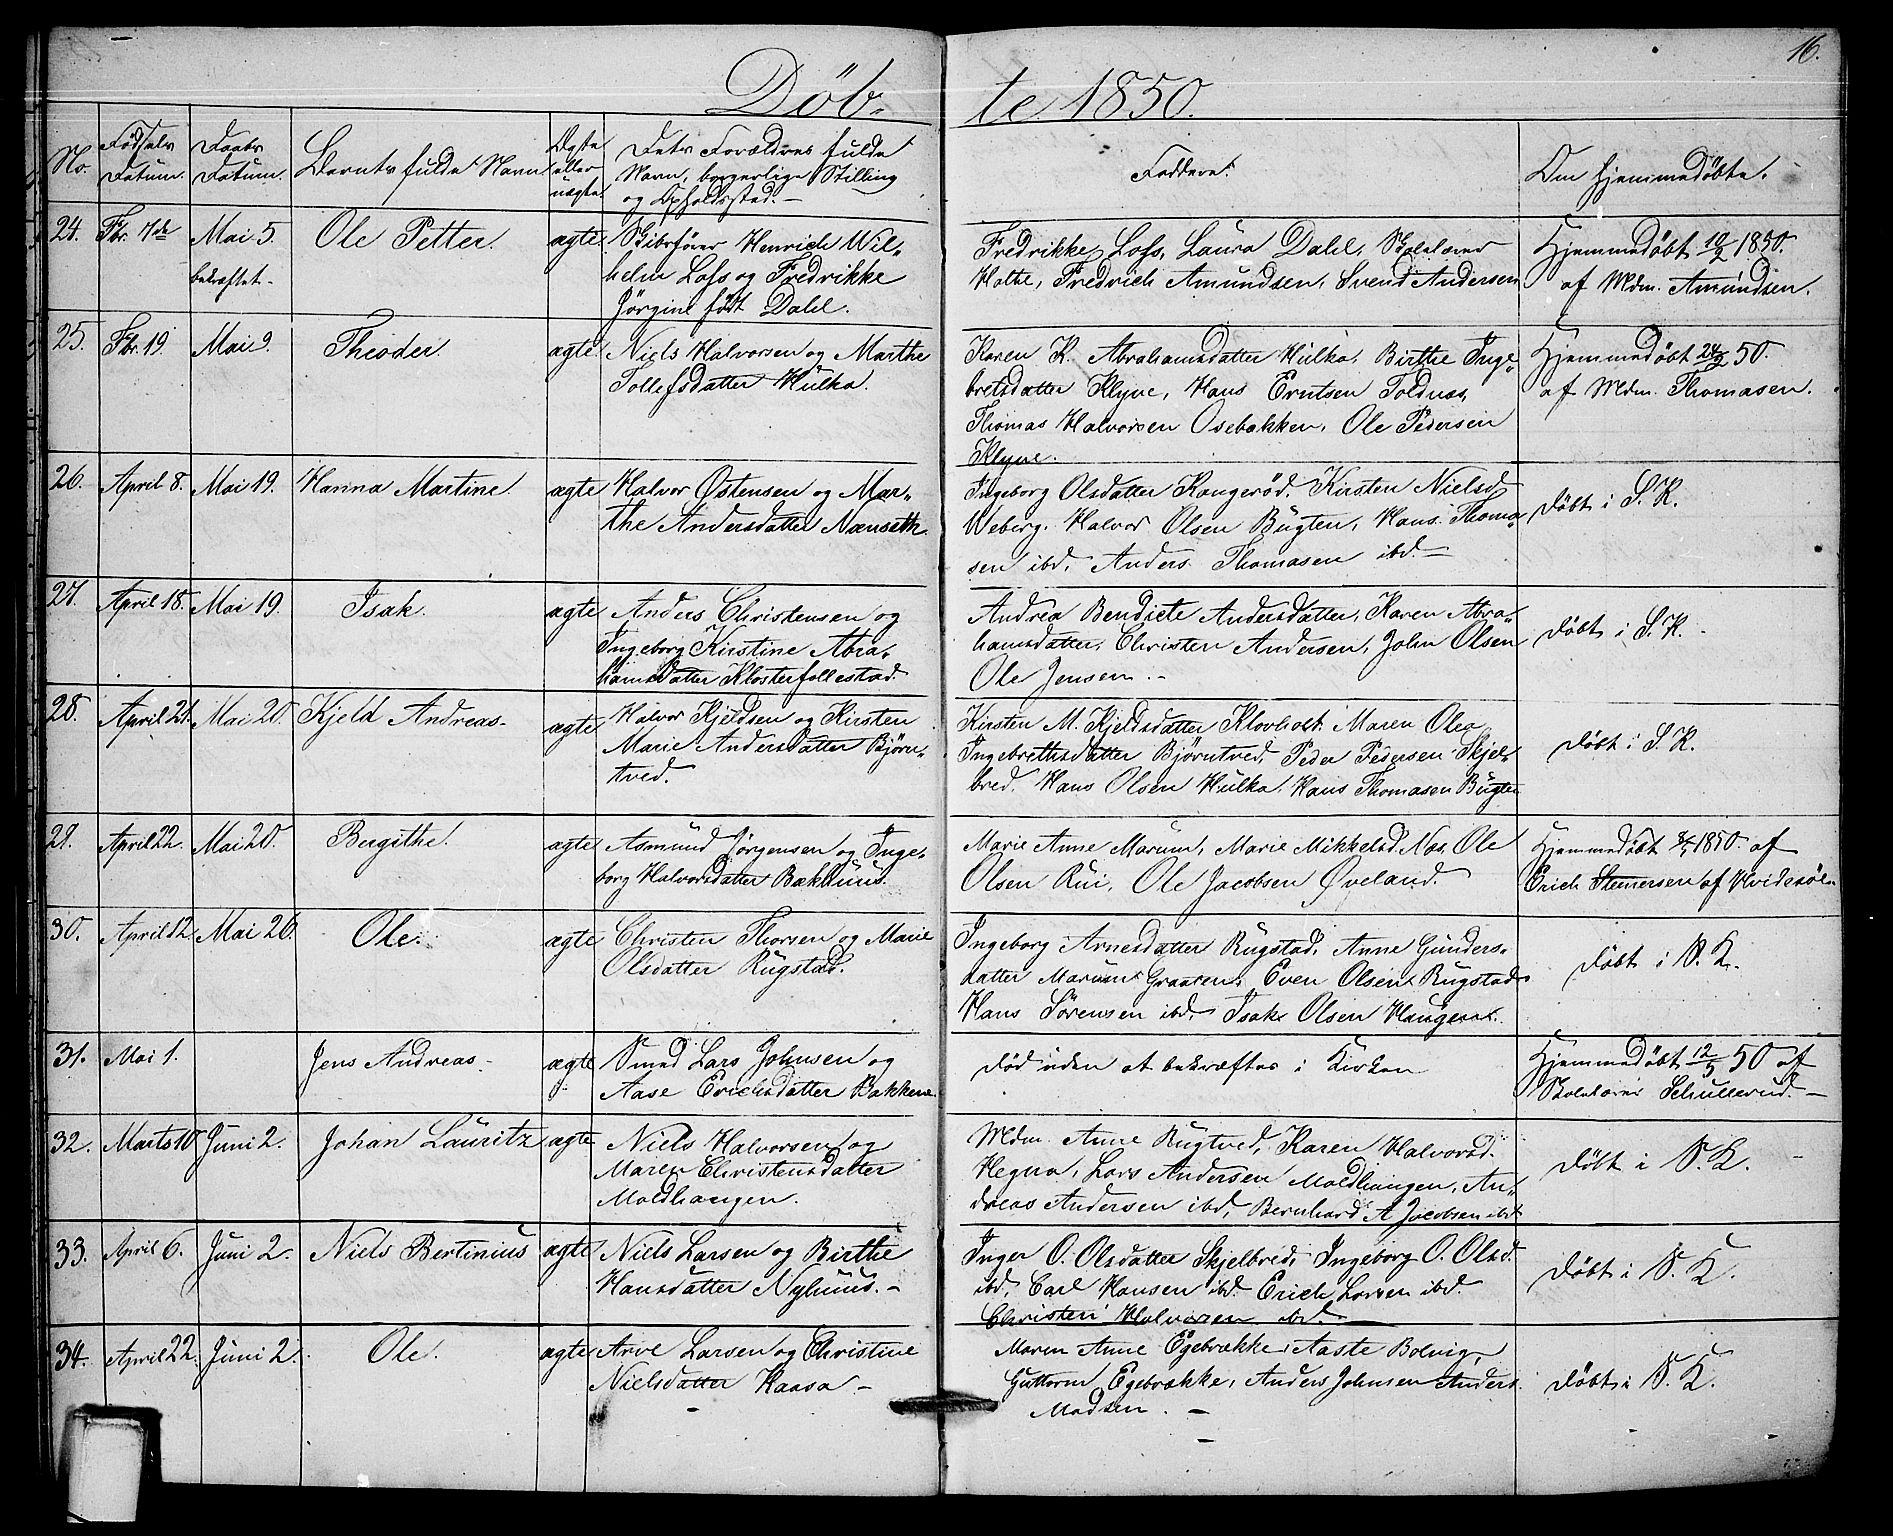 16.
Döb- te 1850.
No. Fødsels Datum. Daabs Datum. Barnets fulde Navn. Ægte eller uægte Dets Forældres fulde Navn, borgerlige Stilling og Opholdssted. Faddere. Om hjemmedøbte.
24. Fbr. 7de Mai 5. bekræftet. Ole Petter. ægte Skibsfører Henrich Wil-
helm Lofs og Fredrikke
Jörgine født Dahl.
Fredrikke Lofs, Laura Dahl, Skolelærer
Holte, Fredrich Amundsen, Svend Andersen
Hjemmedøbt 10/2 1850.
af Mdm. Amundsen.
25. Fbr. 19. Mai 9. Theoder. ægte. Niels Halvorsen og Marthe
Tollefsdatter Hulka.
Karen K. Abrahamsdatter Hulka, Birthe Inge-
bretsdatter Klyve, Hans Erntsen Toldnæs,
Thomas Halvorsen Osebakken, Ole Pedersen
Klyve.
Hjemmedøbt 24/2 50.
af Mdm. Thomasen.
26. April 8. Mai 19. Hanna Martine. ægte Halvor Østensen og Mar-
the Andersdatter Nænseth.
Ingeborg Olsdatter Kongerød, Kirsten Nielsd
Weberg. Halvor Olsen Bugten, Hans Thoma-
sen ibd, Anders Thomasen ibd.
døbt i S. K.
27. April 18. Mai 19. Isak. ægte Anders Christensen og
Ingeborg Kirstine Abra-
hamsdatter Klosterfollestad.
Andrea Bendicte Andersdatter, Karen Abra-
hamsdatter, Christen Andersen, John Olsen
Ole Jensen.
døbt i S. K.
28. April 21. Mai 20. Kjeld Andreas. ægte Halvor Kjeldsen og Kirsten
Marie Andersdatter Bjørn-
tved.
Kirsten M. Kjeldsdatter Klovholt. Maren Olea
Ingebrethsdatter Bjørntved, Peder Pedersen Skjel-
bred. Hans Olsen Hulka. Hans Thomasen Bugten
døbt i S. K.
29. April 22. Mai 20. Bergithe. ægte Asmund Jörgensen og Inge-
borg Halvorsdatter Bækhuus.
Marie Anne Marum, Marie Mikkelsd. Næs, Ole
Olsen Rui, Ole Jacobsen Øveland.
Hjemmedøbt 1850 af
Erich Stenersen af Hvideseid.
30. April 12. Mai 26. Ole. ægte Christen Thorsen og Marie
Olsdatter Rugstad.
Ingeborg Arnesdatter Rugstad, Anne Gunders-
datter Marum Graaten, Even Olsen Rugstad
Hans Sörensen ibd, Isak Olsen Haugen.
døbt i P. K.
31. Mai 1. Jens Andreas. ægte Smed Lars Johnsen og
Aase Erichsdatter Bakken.
død uden at bekræftes i Kirken
Hjemmedøbt 12/5 50 af
Skolelærer Schullerud.
32. Marts 10 Juni 2. Johan Lauritz ægte Niels Halvorsen og
Maren Christensdatter
Moldhaugen.
Mdm. Anne Rugtved, Karen Halvorsd.
Hegna, Lars Andersen Moldhaugen, An-
dreas Andersen ibd, Bernhard A. Jacobsen ibd
døbt i P. K.
33. April 6. Juni 2. Niels Bertinius ægte Niels Larsen og Birthe
Hansdatter Nyhuus.
Inger O. Olsdatter Skjelbred, Ingeborg O. Olsd.
ibd, Carl Hansen ibd. Erich Larsen ibd.
Christen Halvorsen ibd.
døbt i P. K.
34. April 22. Juni 2. Ole. ægte Arve Larsen og Christine
Nielsdatter Kaasa
Maren Anne Egebrække, Aaste Bolvig,
Guttorm Egebrække, Anders Johnsen Anders
Madsen.
døbt i P. K.